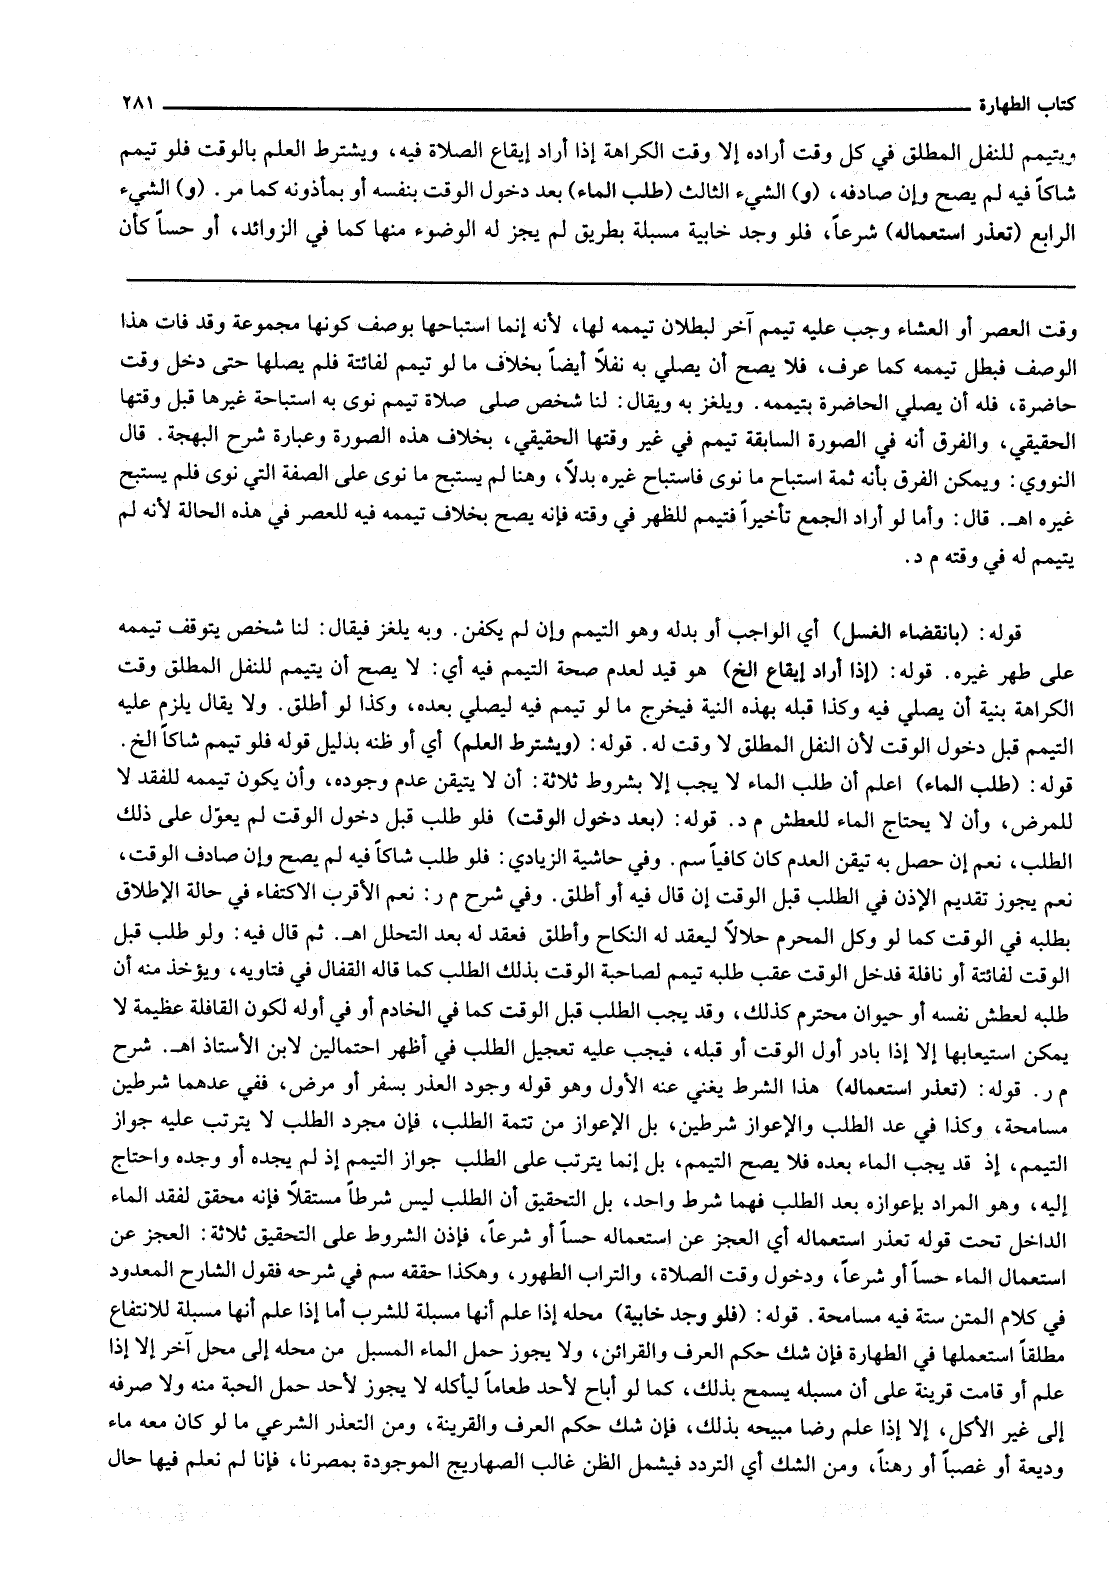 كتاب الطهارة ٢٨١
ويتيمم للنفل المطلق في كل وقت أراده إلا وقت الكراهة إذا أراد إيقاع الصلاة فيه، ويشترط العلم بالوقت فلو تيمم
شاكاً فيه لم يصح وإن صادفه، (و) الشيء الثالث (طلب الماء) بعد دخول الوقت بنفسه أو بمأذونه كما مر. (و) الشيء
الرابع (تعذر استعماله) شرعاً، فلو وجد خابية مسبلة بطريق لم يجز له الوضوء منها كما في الزوائد، أو حساً كأن
وقت العصر أو العشاء وجب عليه تيمم آخر لبطلان تيممه لها، لأنه إنما استباحها بوصف كونها مجموعة وقد فات هذا
الوصف فبطل تيممه كما عرف، فلا يصح أن يصلي به نفلاً أيضاً بخلاف ما لو تيمم لفائتة فلم يصلها حتى دخل وقت
حاضرة، فله أن يصلي الحاضرة بتيممه. ويلغز به ويقال: لنا شخص صلى صلاة تيمم نوى به استباحة غيرها قبل وقتها
الحقيقي، والفرق أنه في الصورة السابقة تيمم في غير وقتها الحقيقي، بخلاف هذه الصورة وعبارة شرح البهجة. قال
النووي: ويمكن الفرق بأنه ثمة استباح ما نوى فاستباح غيره بدلاً، وهنا لم يستبح ما نوى على الصفة التي نوى فلم يستبح
غيره اهـ. قال: وأما لو أراد الجمع تأخيراً فتيمم للظهر في وقته فإنه يصح بخلاف تيممه فيه للعصر في هذه الحالة لأنه لم
يتيمم له في وقته م د.
قوله: (بانقضاء الغسل) أي الواجب أو بدله وهو التيمم وإن لم يكفن. وبه يلغز فيقال: لنا شخص يتوقف تيممه
على طهر غيره. قوله: (إذا أراد إيقاع الخ) هو قيد لعدم صحة التيمم فيه أي: لا يصح أن يتيمم للنفل المطلق وقت
الكراهة بنية أن يصلي فيه وكذا قبله بهذه النية فيخرج ما لو تيمم فيه ليصلي بعده، وكذا لو أطلق. ولا يقال يلزم عليه
التيمم قبل دخول الوقت لأن النفل المطلق لا وقت له. قوله: (ويشترط العلم) أي أو ظنه بدليل قوله فلو تيمم شاكاً الخ.
قوله: (طلب الماء) اعلم أن طلب الماء لا يجب إلا بشروط ثلاثة: أن لا يتيقن عدم وجوده، وأن يكون تيممه للفقد لا
للمرض، وأن لا يحتاج الماء للعطش م د. قوله: (بعد دخول الوقت) فلو طلب قبل دخول الوقت لم يعوّل على ذلك
الطلب، نعم إن حصل به تيقن العدم كان كافياً سم. وفي حاشية الزيادي: فلو طلب شاكاً فيه لم يصح وإن صادف الوقت،
نعم يجوز تقديم الإذن في الطلب قبل الوقت إن قال فيه أو أطلق. وفي شرح م ر: نعم الأقرب الاكتفاء في حالة الإطلاق
بطلبه في الوقت كما لو وكل المحرم حلالاً ليعقد له النكاح وأطلق فعقد له بعد التحلل اهـ. ثم قال فيه: ولو طلب قبل
الوقت لفائتة أو نافلة فدخل الوقت عقب طلبه تيمم لصاحبة الوقت بذلك الطلب كما قاله القفال في فتاويه، ويؤخذ منه أن
طلبه لعطش نفسه أو حيوان محترم كذلك، وقد يجب الطلب قبل الوقت كما في الخادم أو في أوله لكون القافلة عظيمة لا
يمكن استيعابها إلا إذا بادر أول الوقت أو قبله، فيجب عليه تعجيل الطلب في أظهر احتمالين لابن الأستاذ اهـ. شرح
م ر. قوله: (تعذر استعماله) هذا الشرط يغني عنه الأول وهو قوله وجود العذر بسفر أو مرض، ففي عدهما شرطين
مسامحة، وكذا في عد الطلب والإعواز شرطين، بل الإعواز من تتمة الطلب، فإن مجرد الطلب لا يترتب عليه جواز
التيمم، إذ قد يجب الماء بعده فلا يصح التيمم، بل إنما يترتب على الطلب جواز التيمم إذ لم يجده أو وجده واحتاج
إليه، وهو المراد بإعوازه بعد الطلب فهما شرط واحد، بل التحقيق أن الطلب ليس شرطاً مستقلاً فإنه محقق لفقد الماء
الداخل تحت قوله تعذر استعماله أي العجز عن استعماله حساً أو شرعاً، فإذن الشروط على التحقيق ثلاثة: العجز عن
استعمال الماء حساً أو شرعاً، ودخول وقت الصلاة، والتراب الطهور، وهكذا حققه سم في شرحه فقول الشارح المعدود
في كلام المتن ستة فيه مسامحة. قوله: (فلو وجد خابية) محله إذا علم أنها مسبلة للشرب أما إذا علم أنها مسبلة للانتفاع
مطلقاً استعملها في الطهارة فإن شك حكم العرف والقرائن، ولا يجوز حمل الماء المسبل من محله إلى محل آخر إلا إذا
علم أو قامت قرينة على أن مسبله يسمح بذلك، كما لو أباح لأحد طعاماً ليأكله لا يجوز لأحد حمل الحبة منه ولا صرفه
إلى غير الأكل، إلا إذا علم رضا مبيحه بذلك، فإن شك حكم العرف والقرينة، ومن التعذر الشرعي ما لو كان معه ماء
وديعة أو غصباً أو رهناً، ومن الشك أي التردد فيشمل الظن غالب الصهاريج الموجودة بمصرنا، فإنا لم نعلم فيها حال